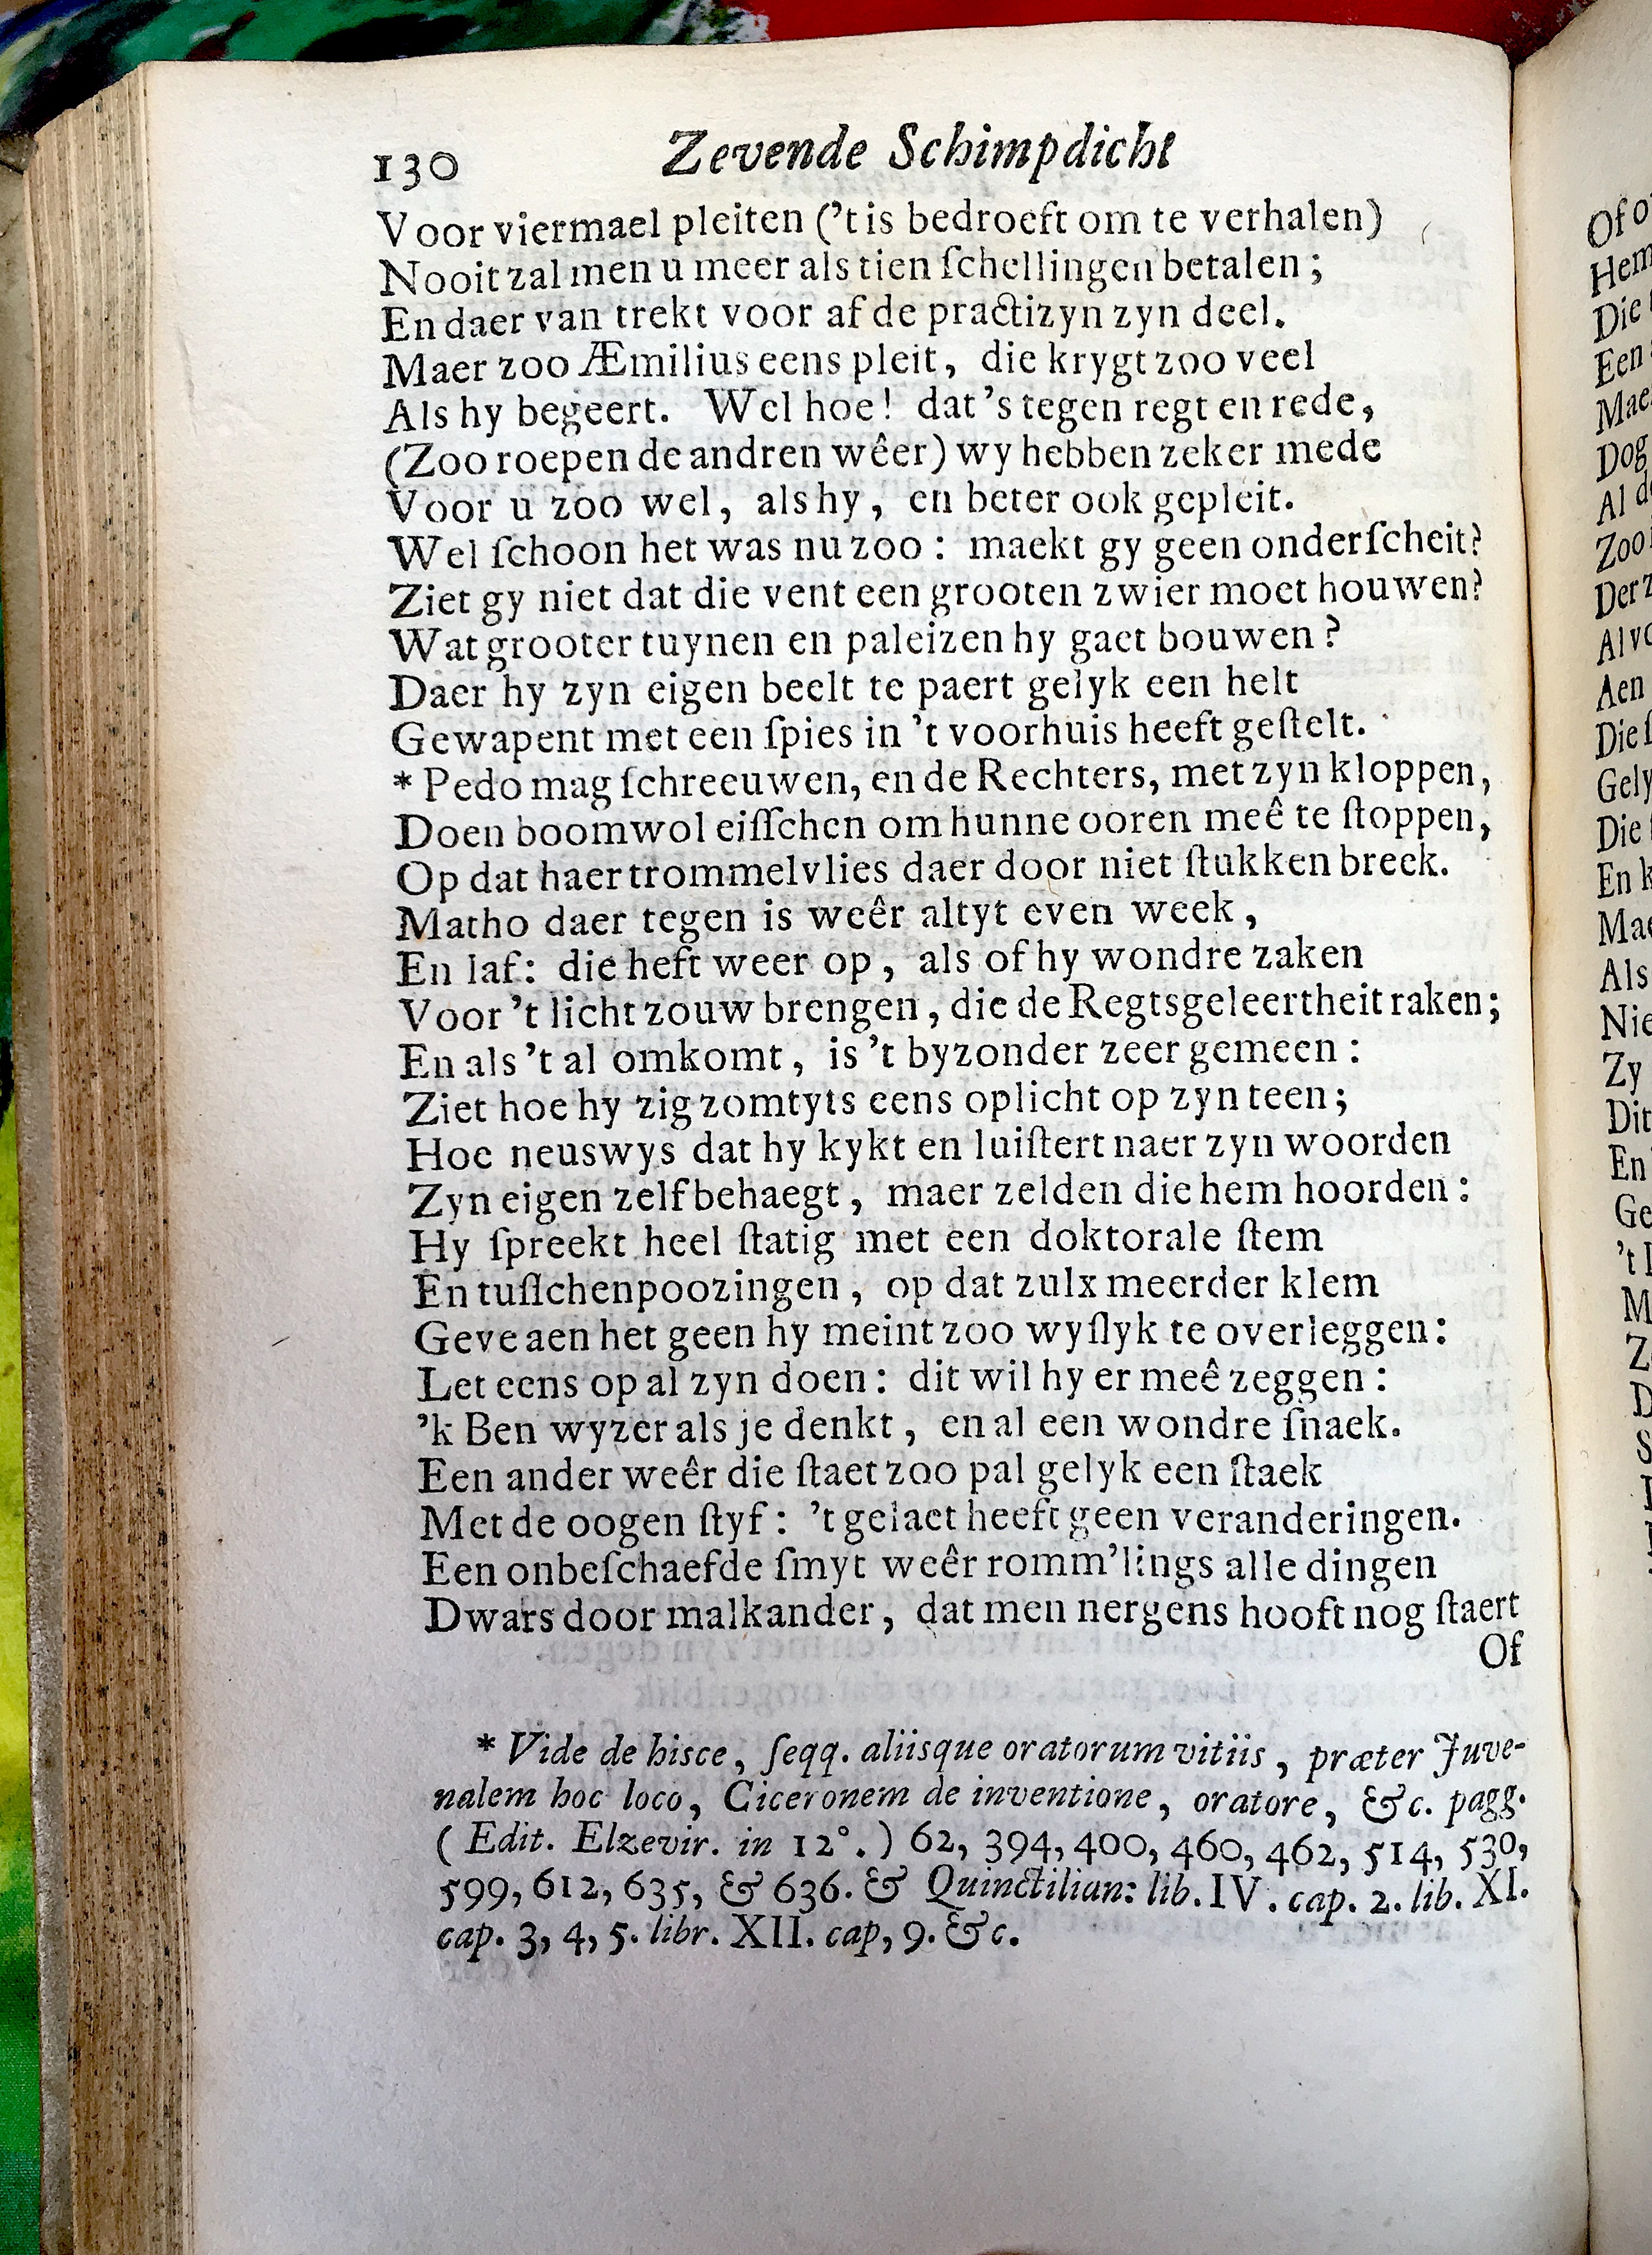 130 Zevende Schimpdicht
Voor viermael pleiten ('t is bedroeft om te verhalen)
Nooit zal men u meer als tien ſchellingen betalen;
En daer van trekt voor af de practizyn zyn deel.
Maer zoo Æmilius eens pleit, die krygt zoo veel
Als hy begeert. Wel hoe! dat 's tegen regt en rede,
(Zoo roepen de andren wêer) wy hebben zeker mede
Voor u zoo wel, als hy, en beter ook gepleit.
Wel ſchoon het was nu zoo: maekt gy geen onderſcheit?
Ziet gy niet dat die vent een grooten zwier moet houwen?
Wat grooter tuynen en paleizen hy gaet bouwen?
Daer hy zyn eigen beelt te paert gelyk een helt
Gewapent met een ſpies in 't voorhuis heeft geſtelt.
* Pedo mag ſchreeuwen, en de Rechters, met zyn kloppen,
Doen boomwol eiſſchen om hunne ooren meê te ſtoppen,
Op dat haer trommelvlies daer door niet ſtukken breek.
Matho daer tegen is weêr altyt even week,
En laf: die heft weer op, als of hy wondre zaken
Voor 't licht zouw brengen, die de Regtsgeleertheit raken;
En als 't al omkomt, is 't byzonder zeer gemeen:
Ziet hoe hy zig zomtyts eens oplicht op zyn teen;
Hoe neuswys dat hy kykt en luiſtert naer zyn woorden
Zyn eigen zelf behaegt, maer zelden die hem hoorden:
Hy ſpreekt heel ſtatig met een doktorale ſtem
En tuſſchenpoozingen, op dat zulx meerder klem
Geve aen het geen hy meint zoo wyſlyk te overleggen:
Let eens op al zyn doen: dit wil hy er meê zeggen:
'k Ben wyzer als je denkt, en al een wondre ſnaek.
Een ander weêr die ſtaet zoo pal gelyk een ſtaek
Met de oogen ſtyf: 't gelaet heeft geen veranderingen.
Een onbeſchaefde ſmyt weêr romm'lings alle dingen
Dwars door malkander, dat men nergens hooft nog ſtaert
Of
* Vide de hisce, ſeqq. aliisque oratorum vitiis, præter Juve-
nalem hoc loco, Ciceronem de inventione, oratore, &c. pagg.
(Edit. Elzevir. in 12°.) 62, 394, 400, 460, 462, 514, 530,
599, 612, 635, & 636. & Quinctilian: lib. IV. cap. 2. lib. XI.
cap. 3, 4, 5. libr. XII. cap, 9. &c.
Of
Hem
Die
Een
Mae
Dog
Al
Zoo
Der
Al
Aen
Die
Gely
Die
En
Mae
Als
Nie
Zy
Dit
En
Ge
't
M
Z
D
S